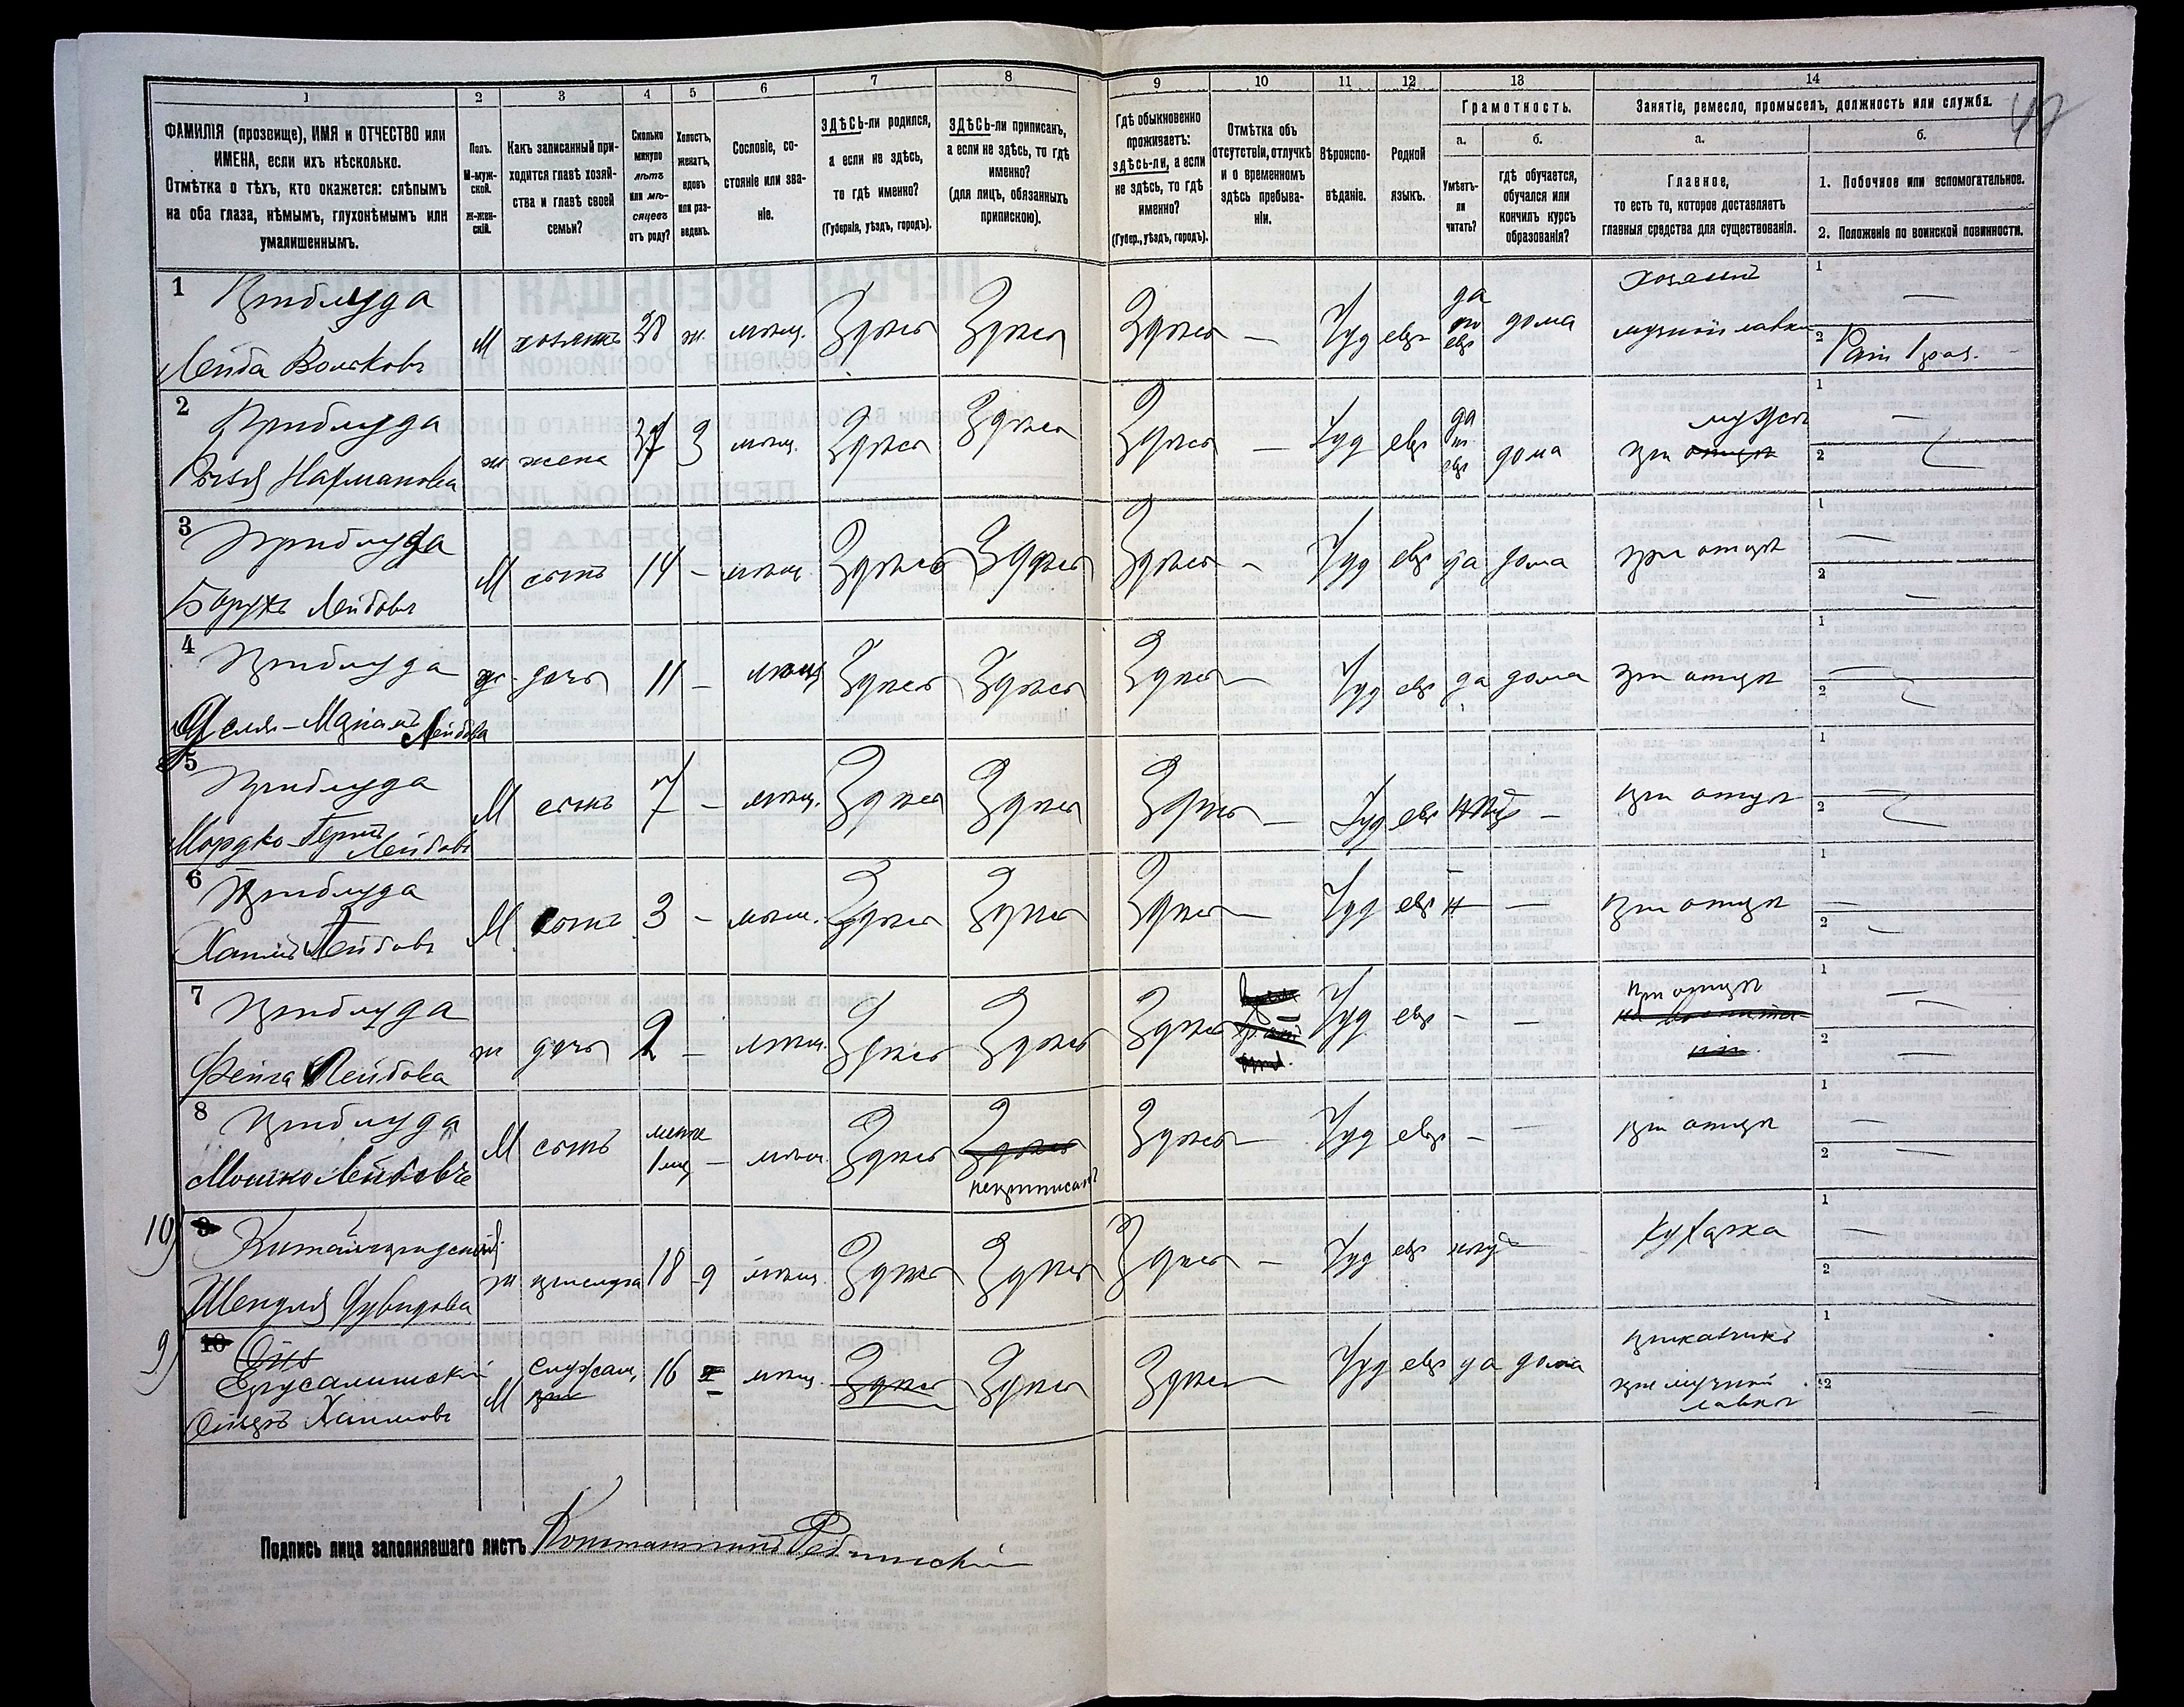 1 2 3 4 5 6 7 8 9 10 11 12 13 14
ФАМИЛІЯ (прозвище), ИМЯ и ОТЧЕСТВО или
ИМЕНА, если ихъ нѣсколько.
Отмѣтка о тѣхъ, кто окажется: слѣпымъ
на оба глаза, нѣмымъ, глухонѣмымъ или
умалишеннымъ.
Полъ.
М-муж-
ской.
Ж-жен-
скій.
Какъ записанный при-
ходится главѣ хозяй-
ства и главѣ своей
семьи?
Сколько
минуло
лѣтъ
или мѣ-
сяцевъ
отъ роду?
Холостъ,
женатъ,
вдовъ
или раз-
веденъ.
Сословіе, со-
стояніе или зва-
ніе.
ЗДѢСЬ-ли родился,
а если не здѣсь,
то гдѣ именно?
(Губернія, уѣздъ, городъ).
ЗДѢСЬ-ли приписанъ,
а если не здѣсь, то гдѣ
именно?
(для лицъ, обязанныхъ
припискою).
Гдѣ обыкновенно
проживаетъ:
здѣсь-ли, а если
не здѣсь, то гдѣ
именно?
(Губер., уѣздъ, городъ).
Отмѣтка объ
отсутствіи, отлучкѣ
и о временномъ
здѣсь пребыва-
ніи.
Вѣроиспо-
вѣданіе.
Родной
языкъ.
Грамотность.
а.
Умѣетъ-
ли
читать?
б.
гдѣ обучается,
обучался или
кончилъ курсъ
образованія?
Занятіе, ремесло, промыселъ, должность или служба.
а.
Главное,
то есть то, которое доставляетъ
главныя средства для существованія.
б.
1. Побочное или вспомогательное.
2. Положеніе по воинской повинности.
1 Приблуда
Лейба Вольковъ М хозяинъ 38 ж. мѣщ. Здѣсь Здѣсь Здѣсь — Іуд евр да по евр дома хозяинъ мучной лавки 1 — 2
2 Приблуда
ж жена 37 З мѣщ. Здѣсь Здѣсь Здѣсь — Іуд евр да по евр дома при мужѣ 1 — 2
3 Приблуда
Борухъ Лейбовъ М сынъ 14 – мѣщ. Здѣсь Здѣсь Здѣсь – Іуд евр да дома при отцѣ 1 — 2 —
4 Приблуда
Лейбова ж дочь 11 – мѣщ Здѣсь Здѣсь Здѣсь — Іуд евр да дома при отцѣ 1 — 2
5 Приблуда
Мордко-Гершъ Лейбовъ М сынъ 7 – мѣщ. Здѣсь Здѣсь Здѣсь — Іуд евр – при отцѣ 1 2
6 Приблуда
Хаимъ Лейбовъ М сынъ 3 – мѣщ. Здѣсь Здѣсь Здѣсь — Іуд евр н — при отцѣ 1 — 2
7 Приблуда
Фейга Лейбова ж дочь 2 – мѣщ. Здѣсь Здѣсь Здѣсь Іуд евр – – при отцѣ 1 — 2 —
8 Приблуда
Мошко Лейбовъ М сынъ менѣе 1 мѣс – мѣщ. Здѣсь Здѣсь неприписанъ Здѣсь — Іуд евр – – при отцѣ 1 — 2 —
10)
Шендля ж прислуга 18 д мѣщ. Здѣсь Здѣсь Здѣсь — Іуд евр Кухарка 1 — 2 —
9) 10
Ерусалимскій
Хаимовъ М служащ. при 16 мѣщ. Здѣсь Здѣсь Здѣсь — Іуд евр да дома прикащикъ при мучной лавкѣ 1 2 —
Подпись лица заполнявшаго листъ Константинъ